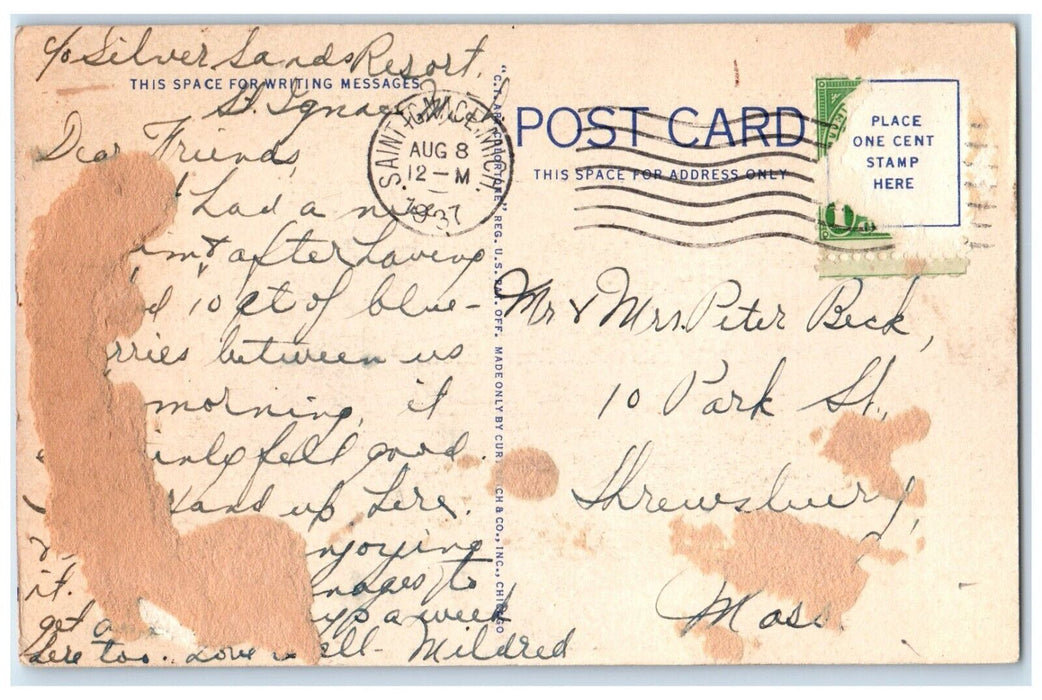 c/o Silver Sands Resort,
THIS SPACE FOR WRITING MESSAGES
St. Ignace,
Dear Friends,
Had a
& after having
10 qt of blue-
rries between us
morning, it
inly fell good.
up here.
njoying
it. to
get a week
here too. Love ll - Mildred
SAINT IGNACE, MICH.
AUG 8
12 - M
1937
"C.T. ART-COLORTONE" REG. U.S. PAT. OFF. MADE ONLY BY CUR CH & CO., INC., CHICAGO
POST CARD
THIS SPACE FOR ADDRESS ONLY
PLACE
ONE CENT
STAMP
HERE
1
Mr & Mrs. Peter Beck,
10 Park St.,
Shrewsbury,
Mass.